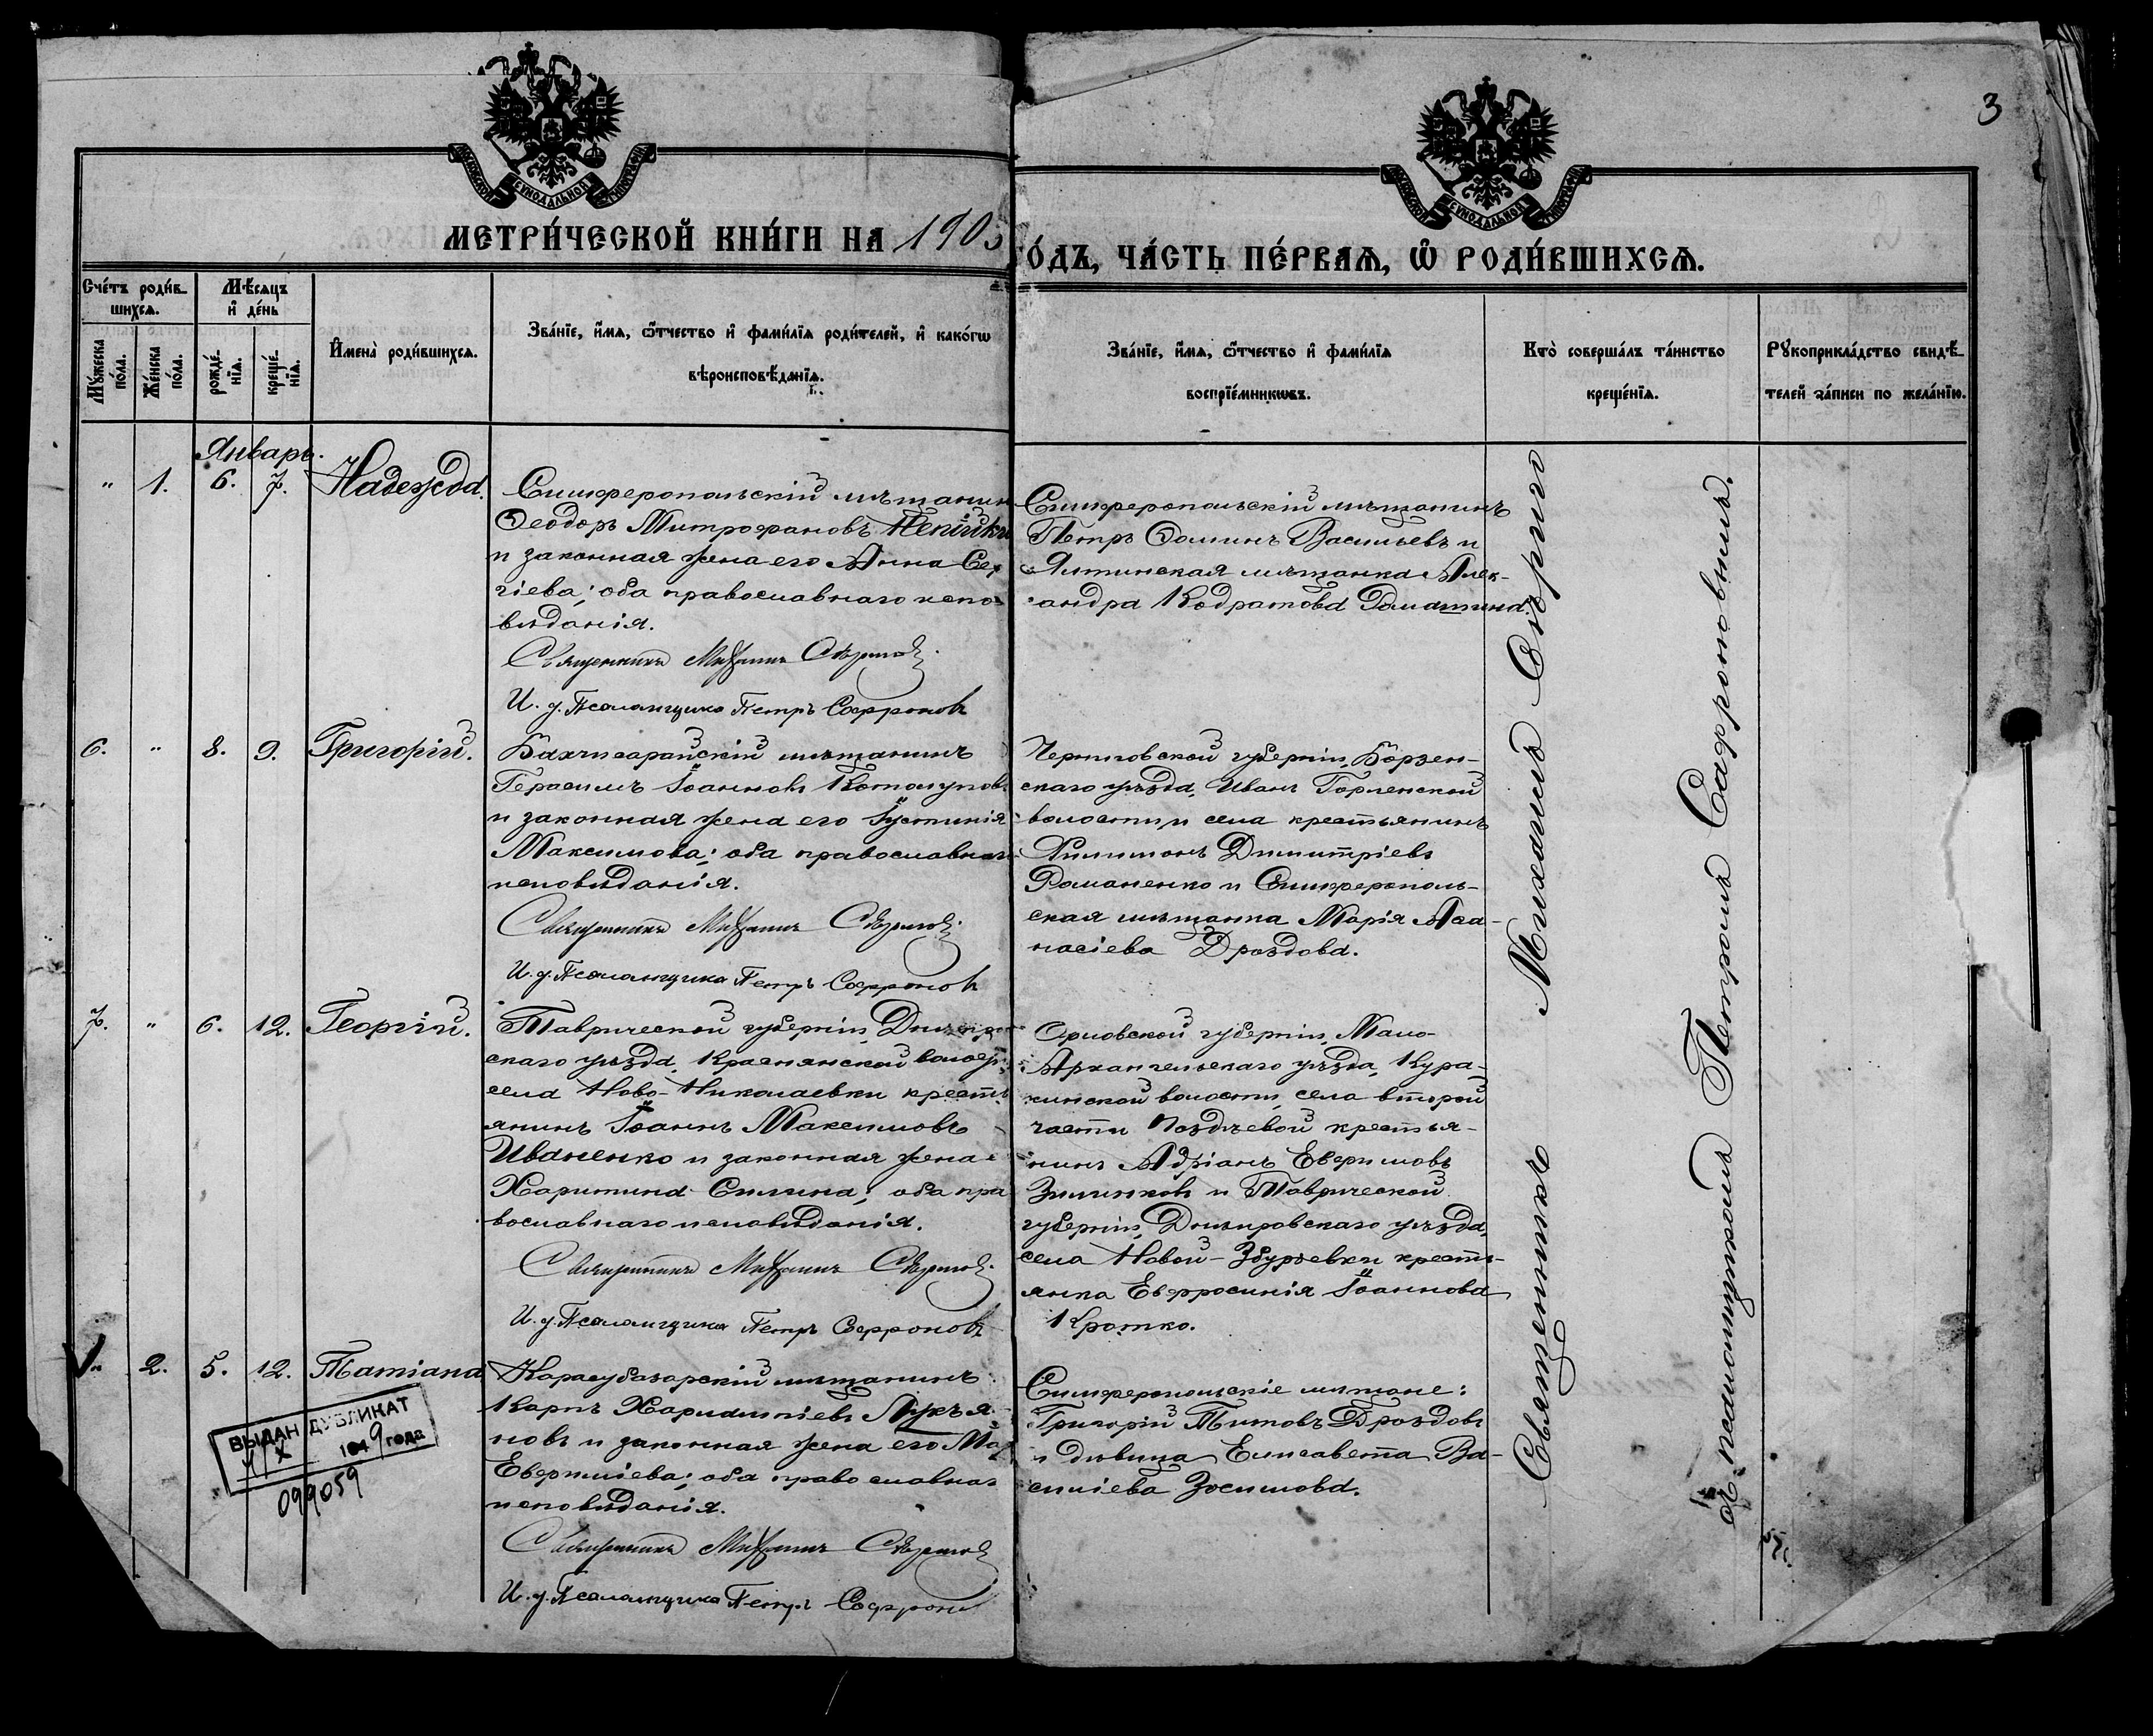 3
МЕТРИ́ЧЕСКОЙ КНИ́ГИ НА 1903
ГО́ДЪ, ЧА́СТЬ ПЕ́РВАѦ, Ѡ҆ РОДИ́ВШИХСѦ.
Сче́тъ роди́в-
шихсѧ.
Мѣ́сѧцъ
и҆ де́нь
Мꙋ́жеска по́ла.
Же́нска по́ла.
рожде́-
нїѧ.
креще́-
нїѧ.
И҆мена̀ роди́вшихсѧ.
Зва́нїе, и҆́мѧ, ѻ҆́тчество и҆ фами́лїѧ роди́телей, и҆ како́гѡ
вѣроисповѣ́данїѧ.
Зва́нїе, и҆́мѧ, ѻ҆́тчество и҆ фами́лїѧ
воспрїе́мникѡвъ.
Кто̀ соверша́лъ та́инство
креще́нїѧ.
Рꙋкоприкла́дство свидѣ́-
телей за́писи по жела́нїю.
Январь.
" 1. 6. 7. Надежда.
Симферопольскій мѣщанин
Ѳеодоръ Митрофановъ
и законная жена его Анна Сер
гіева; оба православнаго испо-
вѣданія.
Священникъ Михаилъ
И. д. Псаломщика Петръ Софронов
Симферопольскій мѣщанинъ
Петръ Ѳоминъ Васильевъ и
Ялтинская мѣщанка Алек-
сандра Кодратова
6. " 8. 9. Григорій.
Бахчисарайскій мѣщанинъ
Герасимъ Іоанновъ
и законная жена его Іустинія
Максимова; оба православнаго
исповѣданія.
Священникъ Михаилъ
И. д. Псаломщика Петръ Софронов
Черниговской губерніи, Борзен-
скаго уѣзда, Иван Горленской
волости, и села крестьянинъ
Филимонъ Димитріевъ
Романенко и Симферополь-
ская мѣщанка Марія Аѳа-
насіева Дроздова.
7. " 6. 12. Георгій.
Таврической губерніи, Днѣпров
скаго уѣзда, Краснянской волости
села Ново-Николаевки кресть
янинъ Іоаннъ Максимовъ
Иваненко и законная жена
Харитина Силина; оба пра
вославнаго исповѣданія.
Священникъ Михаилъ
И. д. Псаломщика Петръ Софронов
Орловской губерніи, Мало-
Архангельскаго уѣзда, Кура-
кинской волости, села второй
части крестья-
нинъ Адріанъ Евфимовъ
и Таврической
губерніи, Днѣпровскаго уѣзда,
села Новой-Збурьевки кресть-
янка Евфросинія Іоаннова
Кротко.
" 2. 5. 12. Татіана
Карасубазарскій мѣщанинъ
Карпъ Харлампіевъ Лукъя-
новъ и законная жена его
Евфиміева; оба православнаго
исповѣданія.
Священникъ Михаилъ
И. д. Псаломщика Петръ Софронов
Симферопольскіе мѣщане:
Григорій Титовъ Дроздовъ
и дѣвица Елисавета Ва-
силіева Зосимова.
ВЫДАН ДУБЛИКАТ
X 1949 года
099059
Священникъ Михаилъ
псаломщикомъ Петромъ Сафроновымъ.